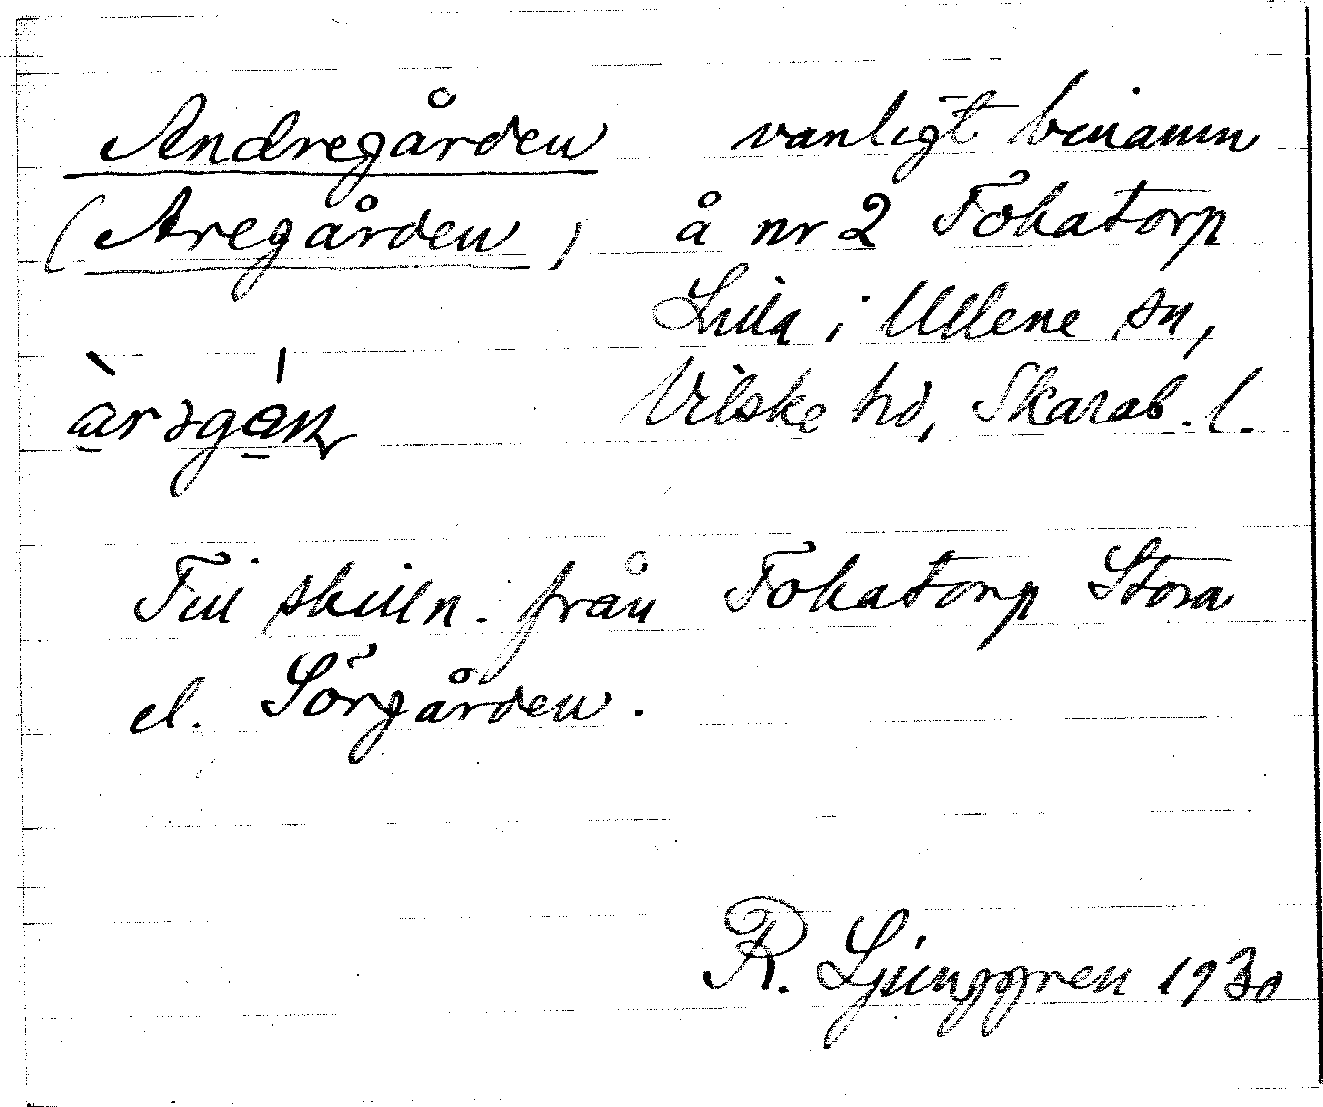 Andregården vanligt binamn
(Aregården) å nr 2 Tokatorp
Lilla i Ullene sn,
Vilske hd, Skarab. l.
Till skilln. från Tokatorp Stora
el. Sörgården.
R. Ljunggren 1930